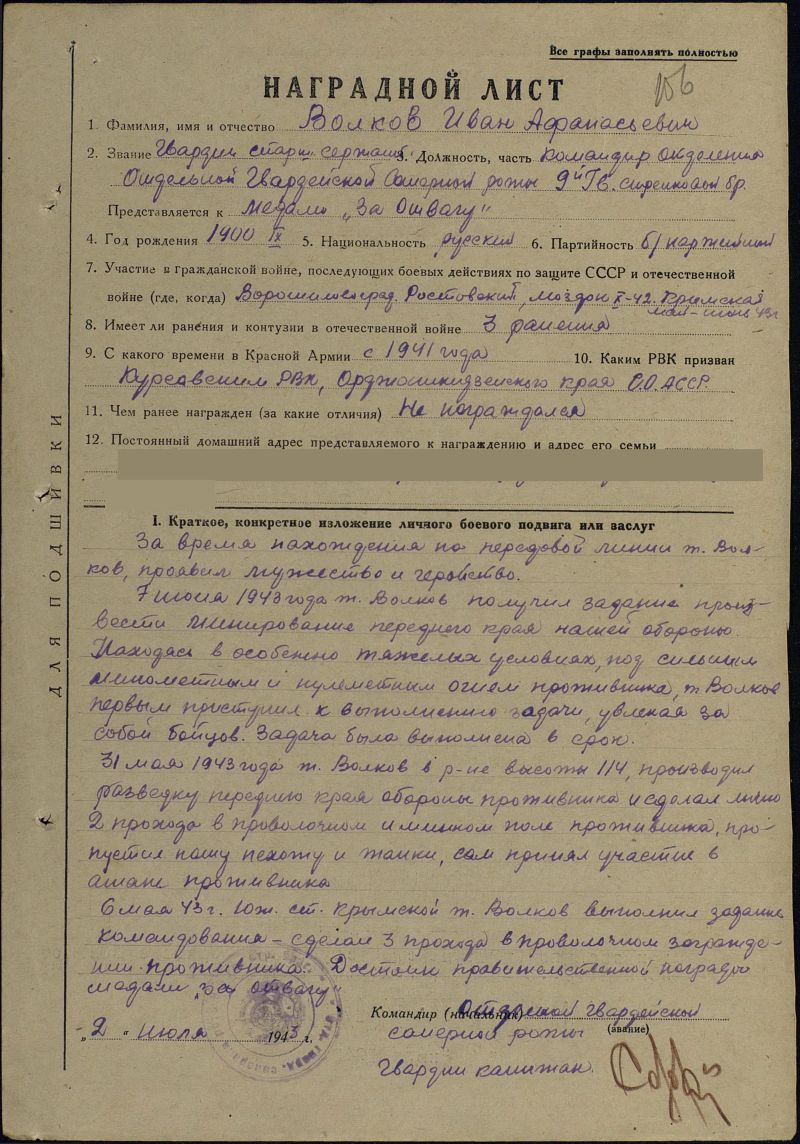 Все графы заполнять полностью
156
НАГРАДНОЙ ЛИСТ
1. Фамилия, имя и отчество Волков Иван Афанасьевич
2. Звание Гвардии старш. сержант 3. Должность, часть командир отделения
Отдельной Гвардейской Саперной роты 9й Гв. стрелковой бр.
Представляется к медали „За Отвагу"
4. Год рождения 1900 IX 5. Национальность русский 6. Партийность б/партийный
7. Участие в гражданской войне, последующих боевых действиях по защите СССР и отечественной
войне (где, когда) Ворошиловоград, Ростовский, Моздок X-42. Крымская
май-июнь 43г
8. Имеет ли ранения и контузии в отечественной войне 3 ранения
9. С какого времени в Красной Армии с 1941 года 10. Каким РВК призван
Курсавским РВК, Орджоникидзевского края С.О.АССР.
11. Чем ранее награжден (за какие отличия) Не награждался
12. Постоянный домашний адрес представляемого к награждению и адрес его семьи
I. Краткое, конкретное изложение личного боевого подвига или заслуг
За время нахождения на передовой линии т. Вол-
ков, проявил мужество и геройство.
7 июня 1943 года т. Волков получил задание произ-
вести минирование переднего края нашей обороны.
Находясь в особенно тяжелых условиях, под сильным
минометным и пулеметным огнем противника, т. Волков
первым приступил к выполнению задачи, увлекая за
собой бойцов. Задача была выполнена в срок.
31 мая 1943 года т. Волков в р-не высоты 114, производил
разведку переднею края обороны противника и сделал лично
2 прохода в проволочном и минном поле противника, про-
пустил нашу пехоту и танки, сам принял участие в
атаке противника
6 мая 43 г. Юж. ст. Крымской т. Волков выполнил задание
командования – сделал 3 прохода в проволочном загражде-
нии противника. Достоин правительственной награды
медали „за отвагу"
Командир (начальник) Отдельной Гвардейской
„2" июля 1943 г. саперной роты (звание)
Гвардии капитан.
ДЛЯ ПОДШИВКИ